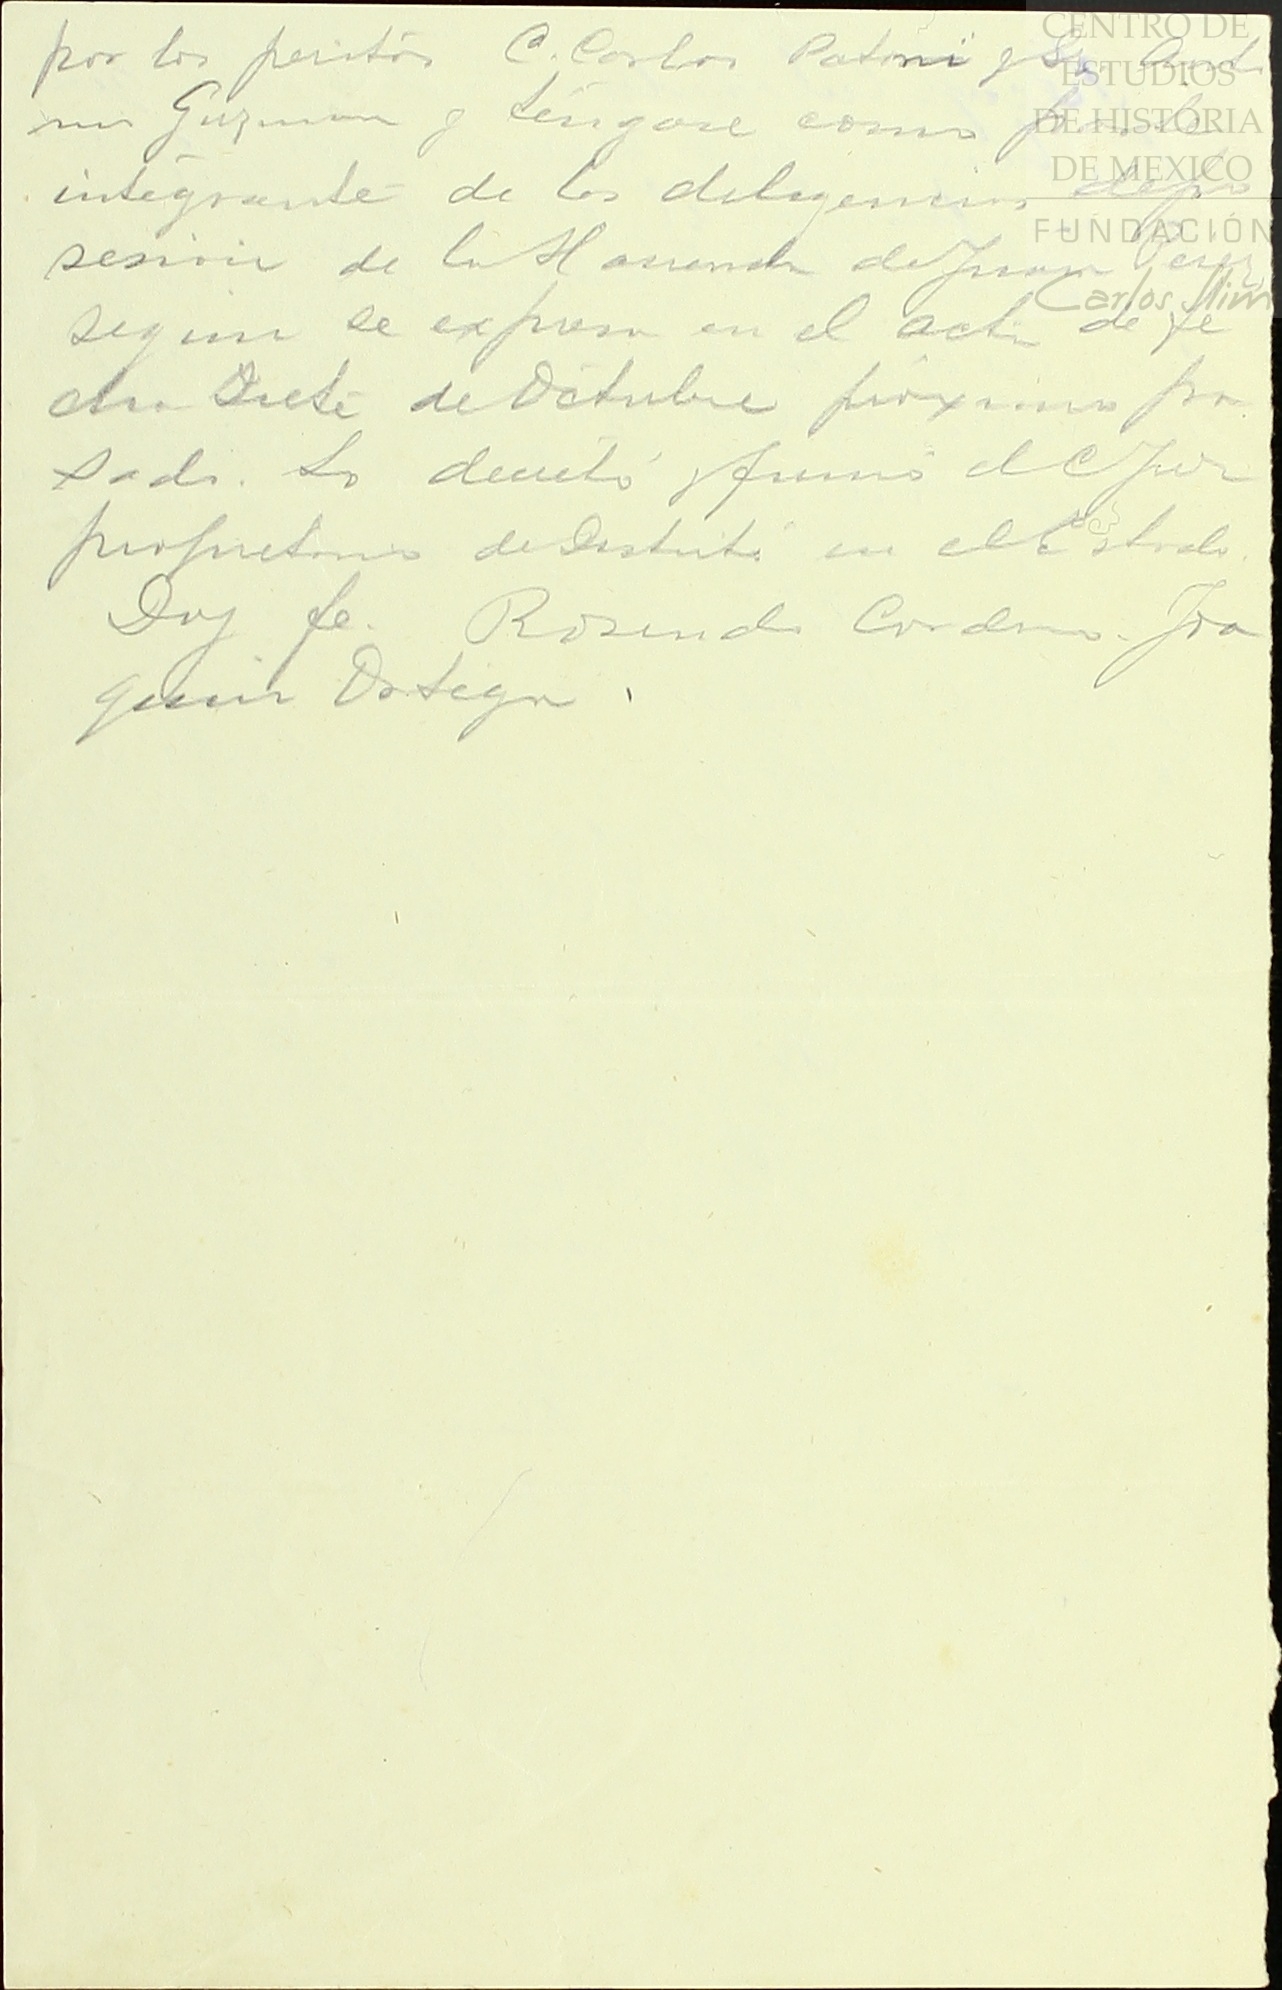 por los peritos C. Carlos Patoni y
Guzman y téngase como parte
integrante de las diligencias de po
sesion de la Hacienda de Juan Perez
segun se expresa en el acta de fe
cha Siete de Octubre próximo pa
sado. Lo decretó y firmó el C Juez
propietario de Distrito en el Estado.
Doy fe. Rosendo Cordero. Joa
quin Ortega.
CENTRO DE
ESTUDIOS
DE HISTORIA
DE MEXICO
FUNDACIÓN
Carlos Slim